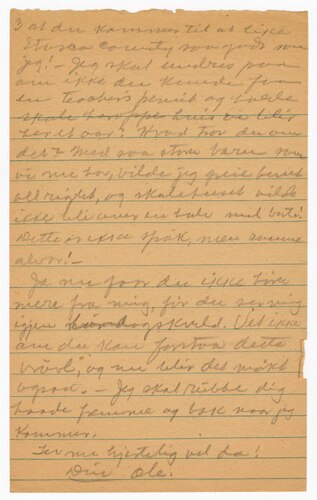 3 at du kommer til at like
Itasca County saa godt som
jeg! - Jeg skal undres paa
om ikke du kunde faa
en teachers permit og holde
skole her oppe hvis vi blir
her et aar? Hvad tror du om
det? Med saa store barn som
vi nu har, vilde jeg greie
allright, og skolehuset vilde
ikke bli over en half mil borte!
Dette er ikke spøk, men ramme
alvor! -
Ja nu faar du ikke høre
mere fra mig, før du ser mig
igjen kveld. Vet ikke
om du kan forstaa dette
"vrøvl", og nu blir det mørkt
ogsaa. - Jeg skal rubbe dig
baade framme og bak naar jeg
kommer.
Lev nu hjertelig vel da!
Din Ole.